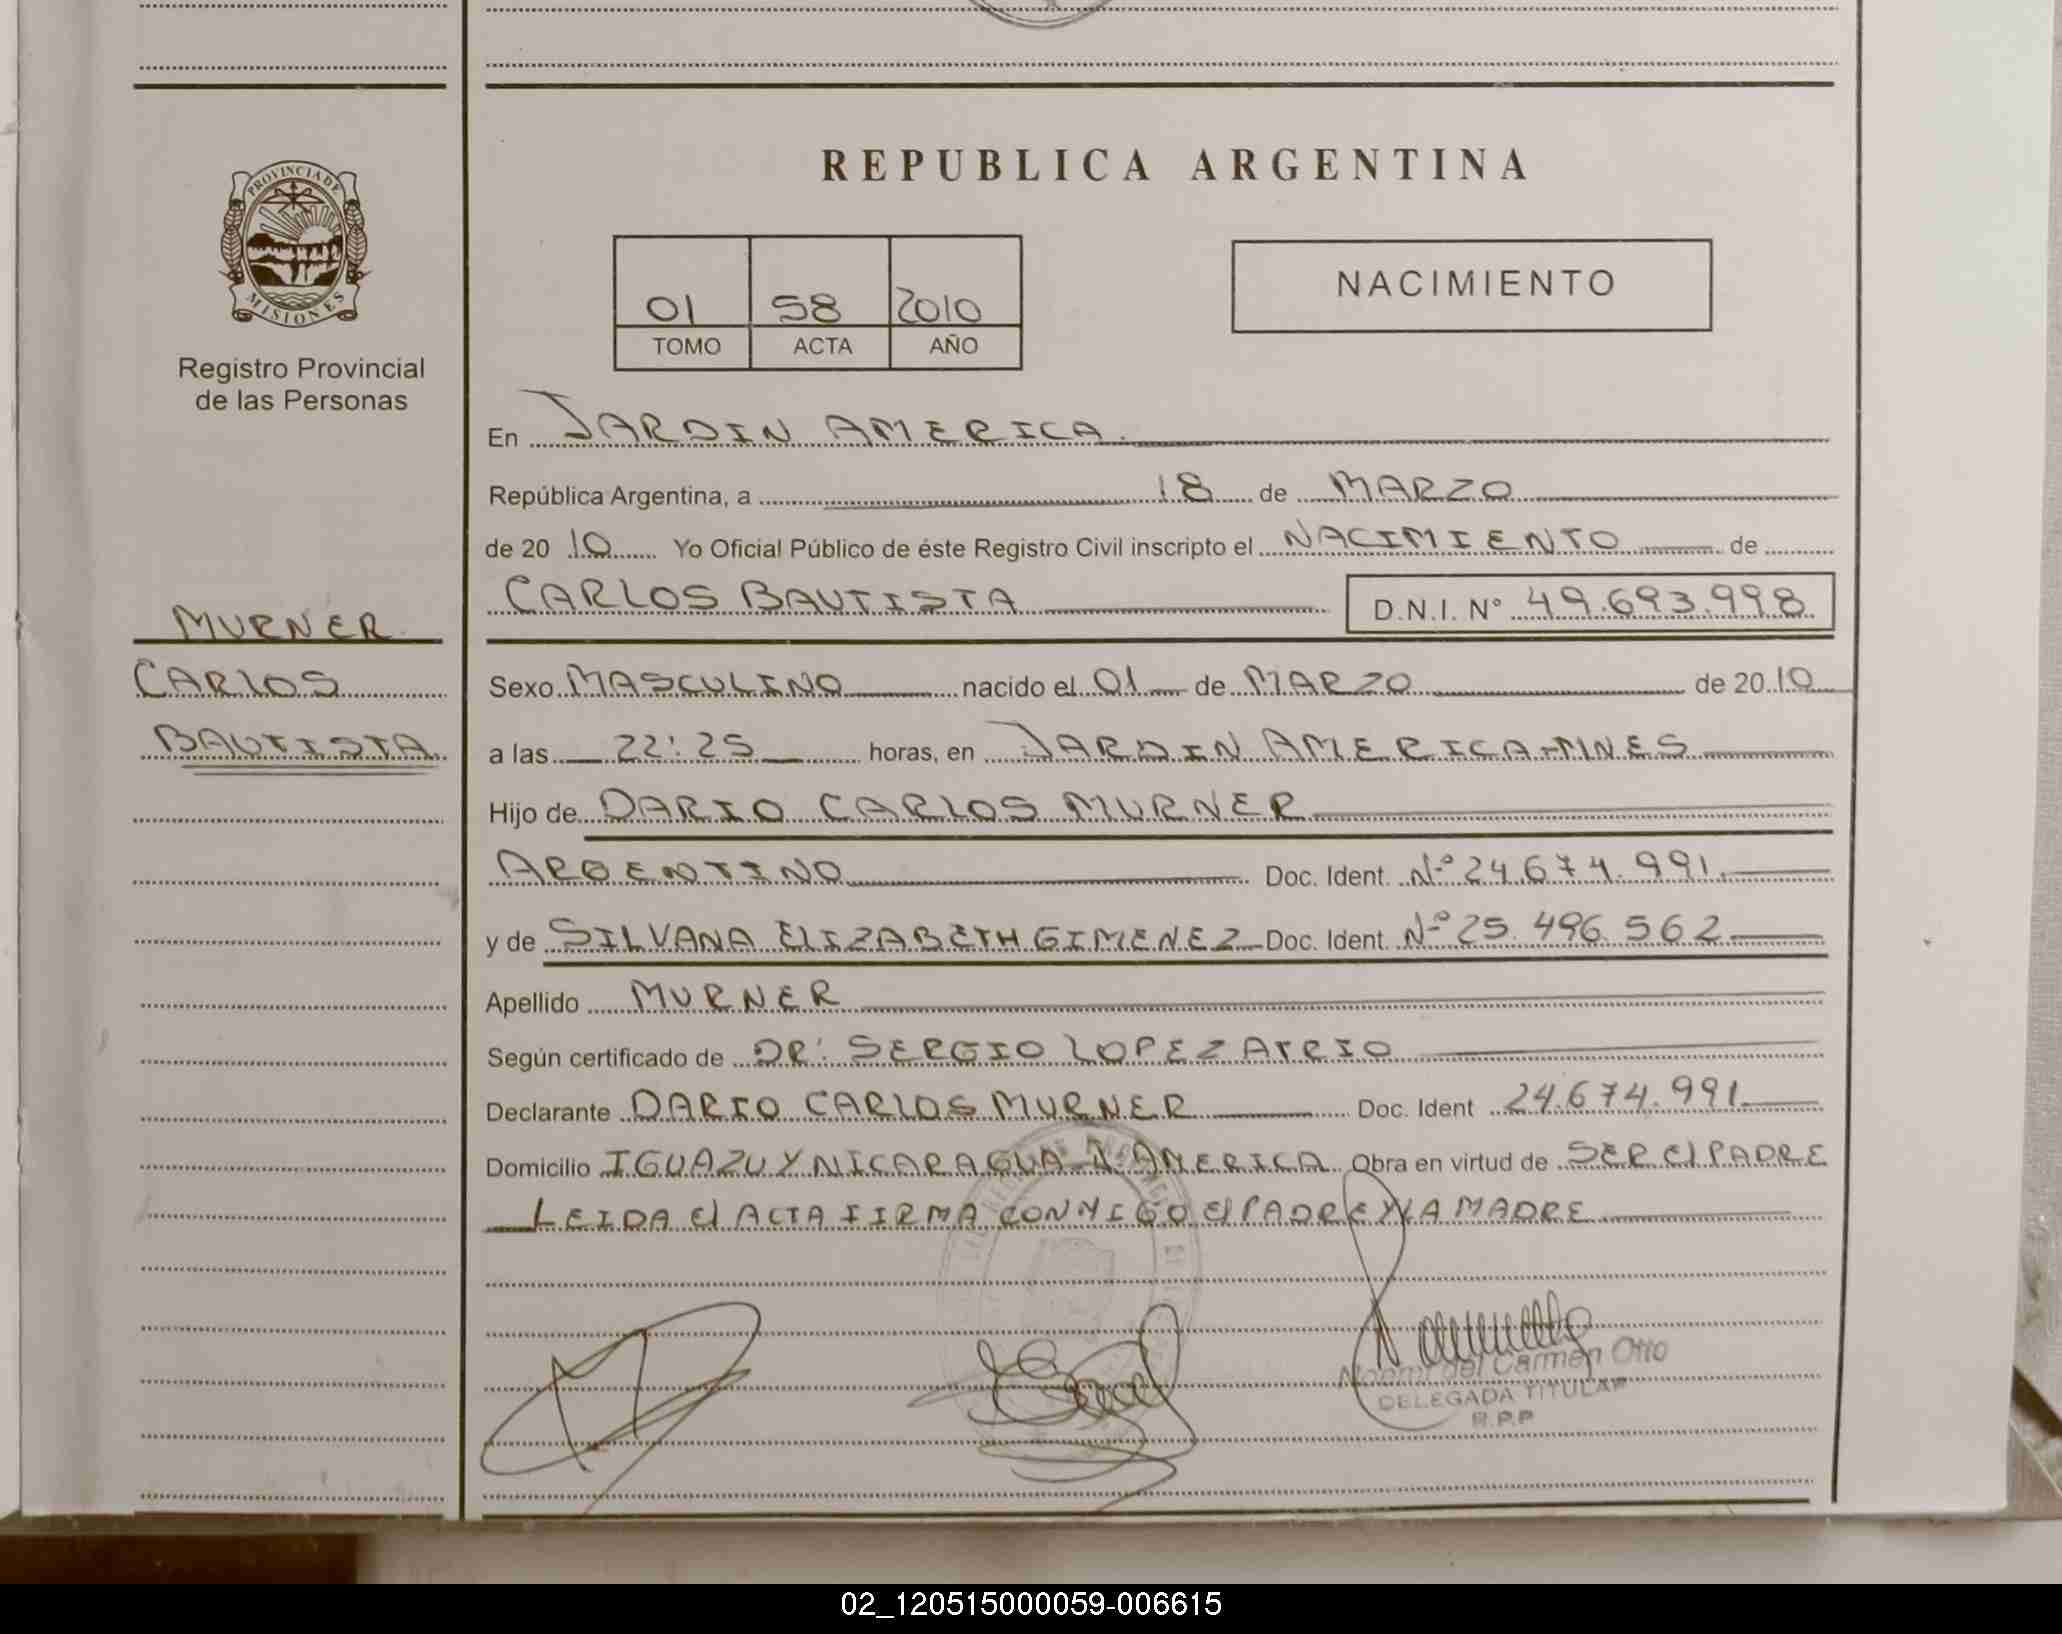 REPUBLICA ARGENTINA
PROVINCIA DE
MISIONES
Registro Provincial
de las Personas
01 58 2010
TOMO ACTA AÑO
NACIMIENTO
En JARDIN AMERICA
República Argentina, a 18 de MARZO
de 20 10 Yo Oficial Público de éste Registro Civil inscripto el NACIMIENTO de
CARLOS BAUTISTA D.N.I. N° 49.693.998
MURNER
CARLOS
BAUTISTA
Sexo MASCULINO nacido el 01 de MARZO de 20 10
a las 22:25 horas, en JARDIN AMERICA-MNES
Hijo de DARIO CARLOS MURNER
ARGENTINO Doc. Ident. Nº 24.674.991
y de SILVANA ELIZABETH GIMENEZ Doc. Ident. Nº 25.496.562
Apellido MURNER
Según certificado de DR: SERGIO LOPEZ
Declarante DARIO CARLOS MURNER Doc. Ident 24.674.991
Domicilio IGUAZU Y NICARAGUA J. AMERICA Obra en virtud de SER El PADRE
LEIDA El ACTA FIRMA CONMIGO El PADRE Y LA MADRE
del Carmen Otto
DELEGADA TITULAR
R.P.P
02_120515000059-006615